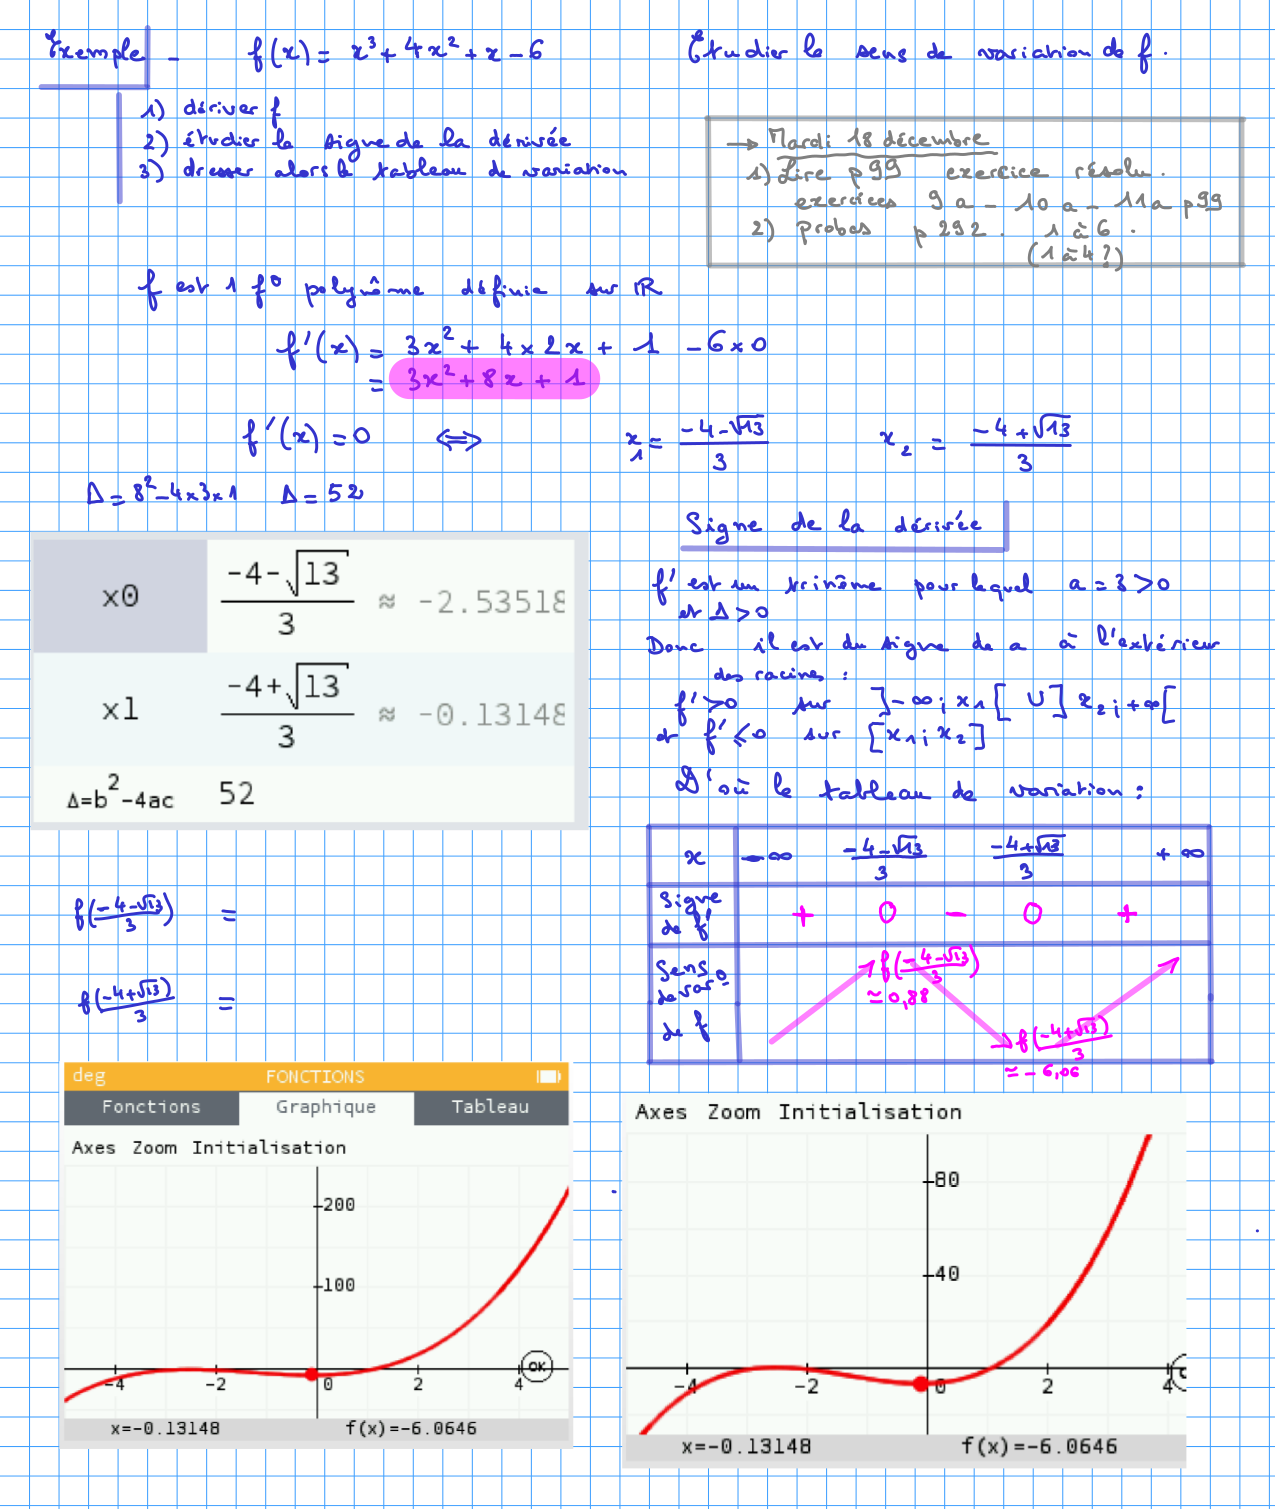 Exemple - f(x) = x³ + 4x² + x - 6 Etudier le sens de variation de f.
1) dériver f
2) étudier le signe de la dérivée
3) dresser alors le tableau de variation
→ Mardi 18 décembre
1) Lire p 99 exercice résolu.
exercices 9a - 10a - 11a p99
2) probas p 292. 1 à 6.
(1 à 4?)
f est 1 f° polynôme définie sur ℝ
f'(x) = 3x² + 4×2x + 1 - 6×0
= 3x² + 8x + 1
f'(x) = 0 ⟺ x₁ = (-4-√13)/3 x₂ = (-4+√13)/3
Δ = 8² - 4×3×1 Δ = 52
x0 (-4-√13)/3 ≈ -2.53518
x1 (-4+√13)/3 ≈ -0.13148
Δ=b²-4ac 52
Signe de la dérivée
f' est un trinôme pour lequel a = 3 > 0
et Δ > 0
Donc il est du signe de a à l'extérieur
des racines :
f' > 0 sur ]-∞; x₁[ ∪ ]x₂; +∞[
et f' ≤ 0 sur [x₁; x₂]
D'où le tableau de variation :
x -∞ (-4-√13)/3 (-4+√13)/3 +∞
Signe de f' + 0 - 0 +
Sens de var° de f
f((-4-√13)/3)
≃ 0,88
f((-4+√13)/3)
≃ -6,06
f((-4-√13)/3) =
f((-4+√13)/3) =
deg FONCTIONS
Fonctions Graphique Tableau
Axes Zoom Initialisation
200
100
-4 -2 0 2 4 OK
x=-0.13148 f(x)=-6.0646
Axes Zoom Initialisation
80
40
-4 -2 0 2 4
x=-0.13148 f(x)=-6.0646